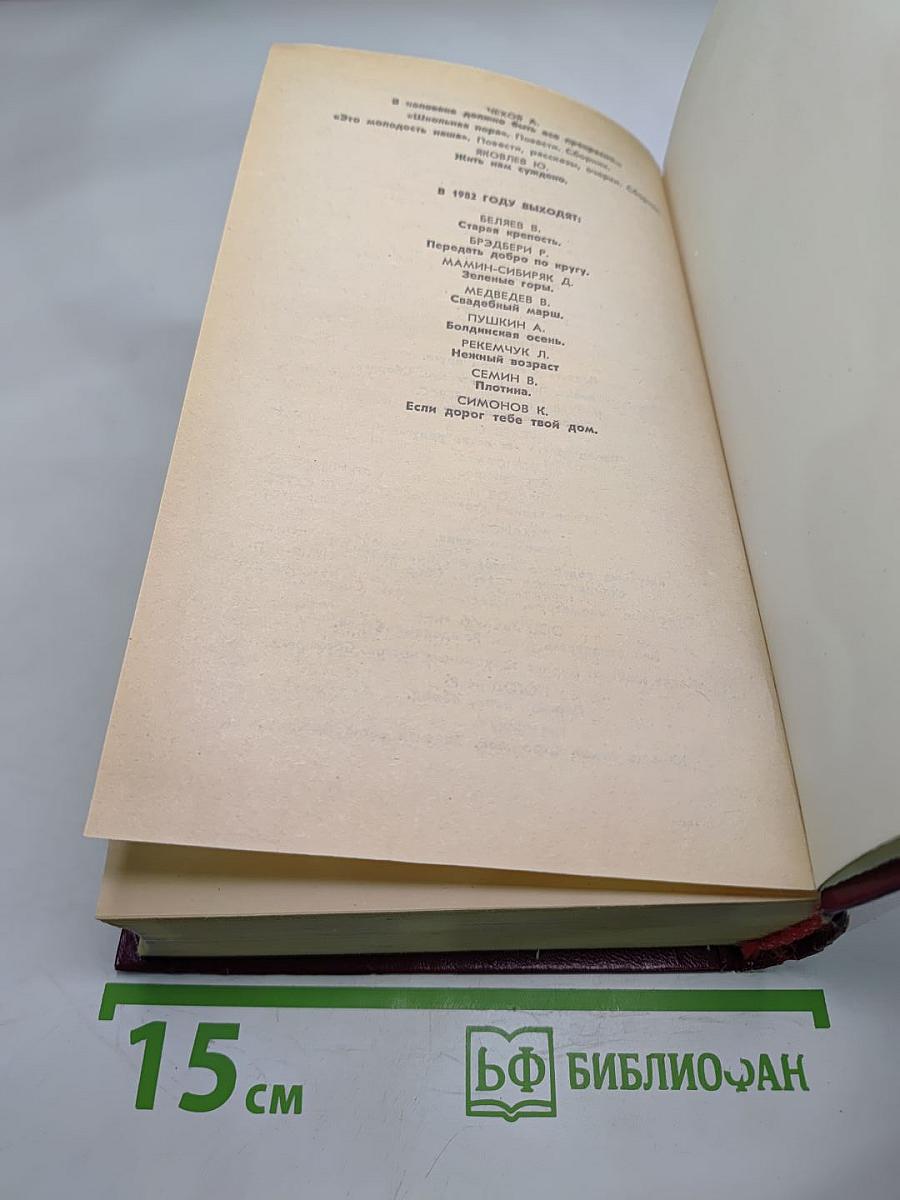 ЧЕХОВ А.
В человеке должно быть все прекрасно...
«Школьная пора». Повести. Сборник.
«Это молодость наша». Повести, рассказы, очерки. Сборник.
ЯКОВЛЕВ Ю.
Жить нам суждено.
В 1982 ГОДУ ВЫХОДЯТ:
БЕЛЯЕВ В.
Старая крепость.
БРЭДБЕРИ Р.
Передать добро по кругу.
МАМИН-СИБИРЯК Д.
Зеленые горы.
МЕДВЕДЕВ В.
Свадебный марш.
ПУШКИН А.
Болдинская осень.
РЕКЕМЧУК Л.
Нежный возраст
СЕМИН В.
Плотина.
СИМОНОВ К.
Если дорог тебе твой дом.
15 см
БФ БИБЛИОФАН